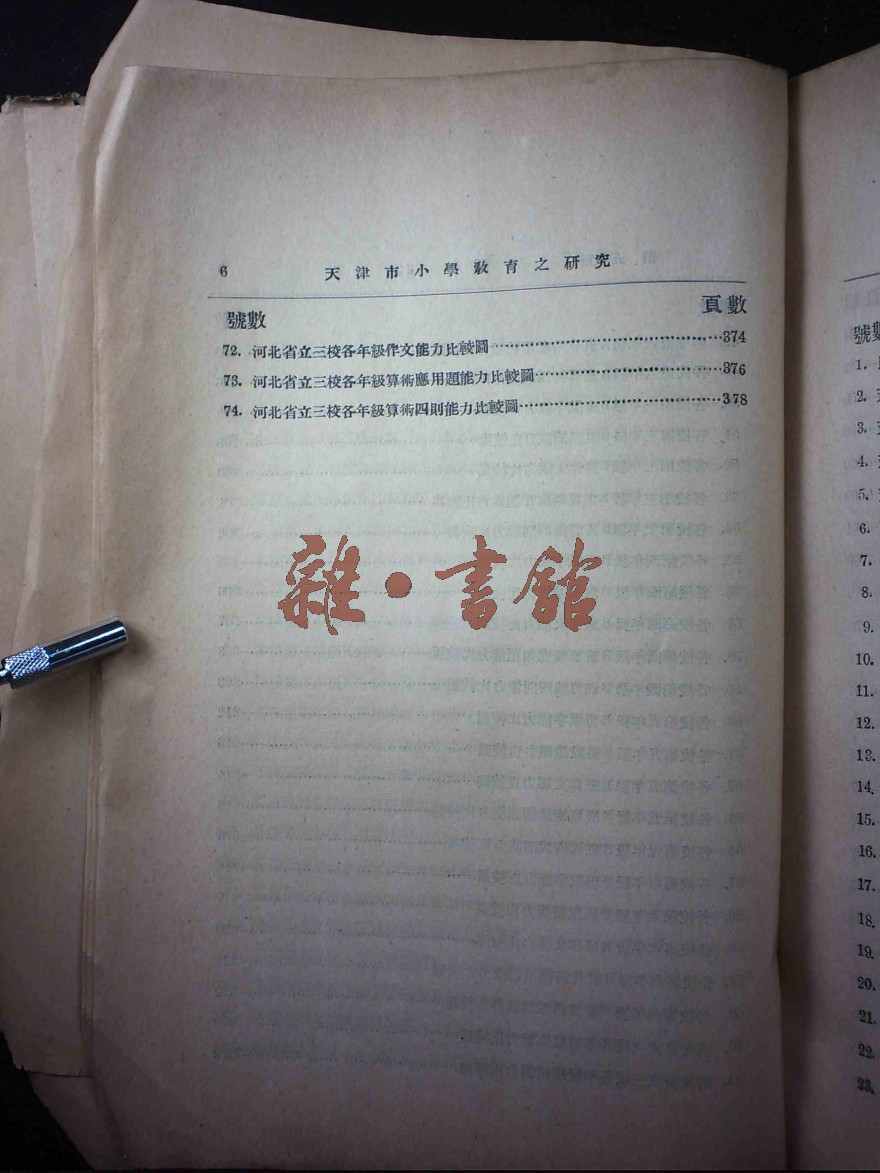 6 天津市小學教育之研究
號數 頁數
72. 河北省立三校各年級作文能力比較圖……374
73. 河北省立三校各年級算術應用題能力比較圖……376
74. 河北省立三校各年級算術四則能力比較圖……378
雜·書館
號
1.
2.
3.
4.
5.
6.
7.
8.
9.
10.
11.
12.
13.
14.
15.
16.
17.
18.
19.
20.
21.
22.
23.